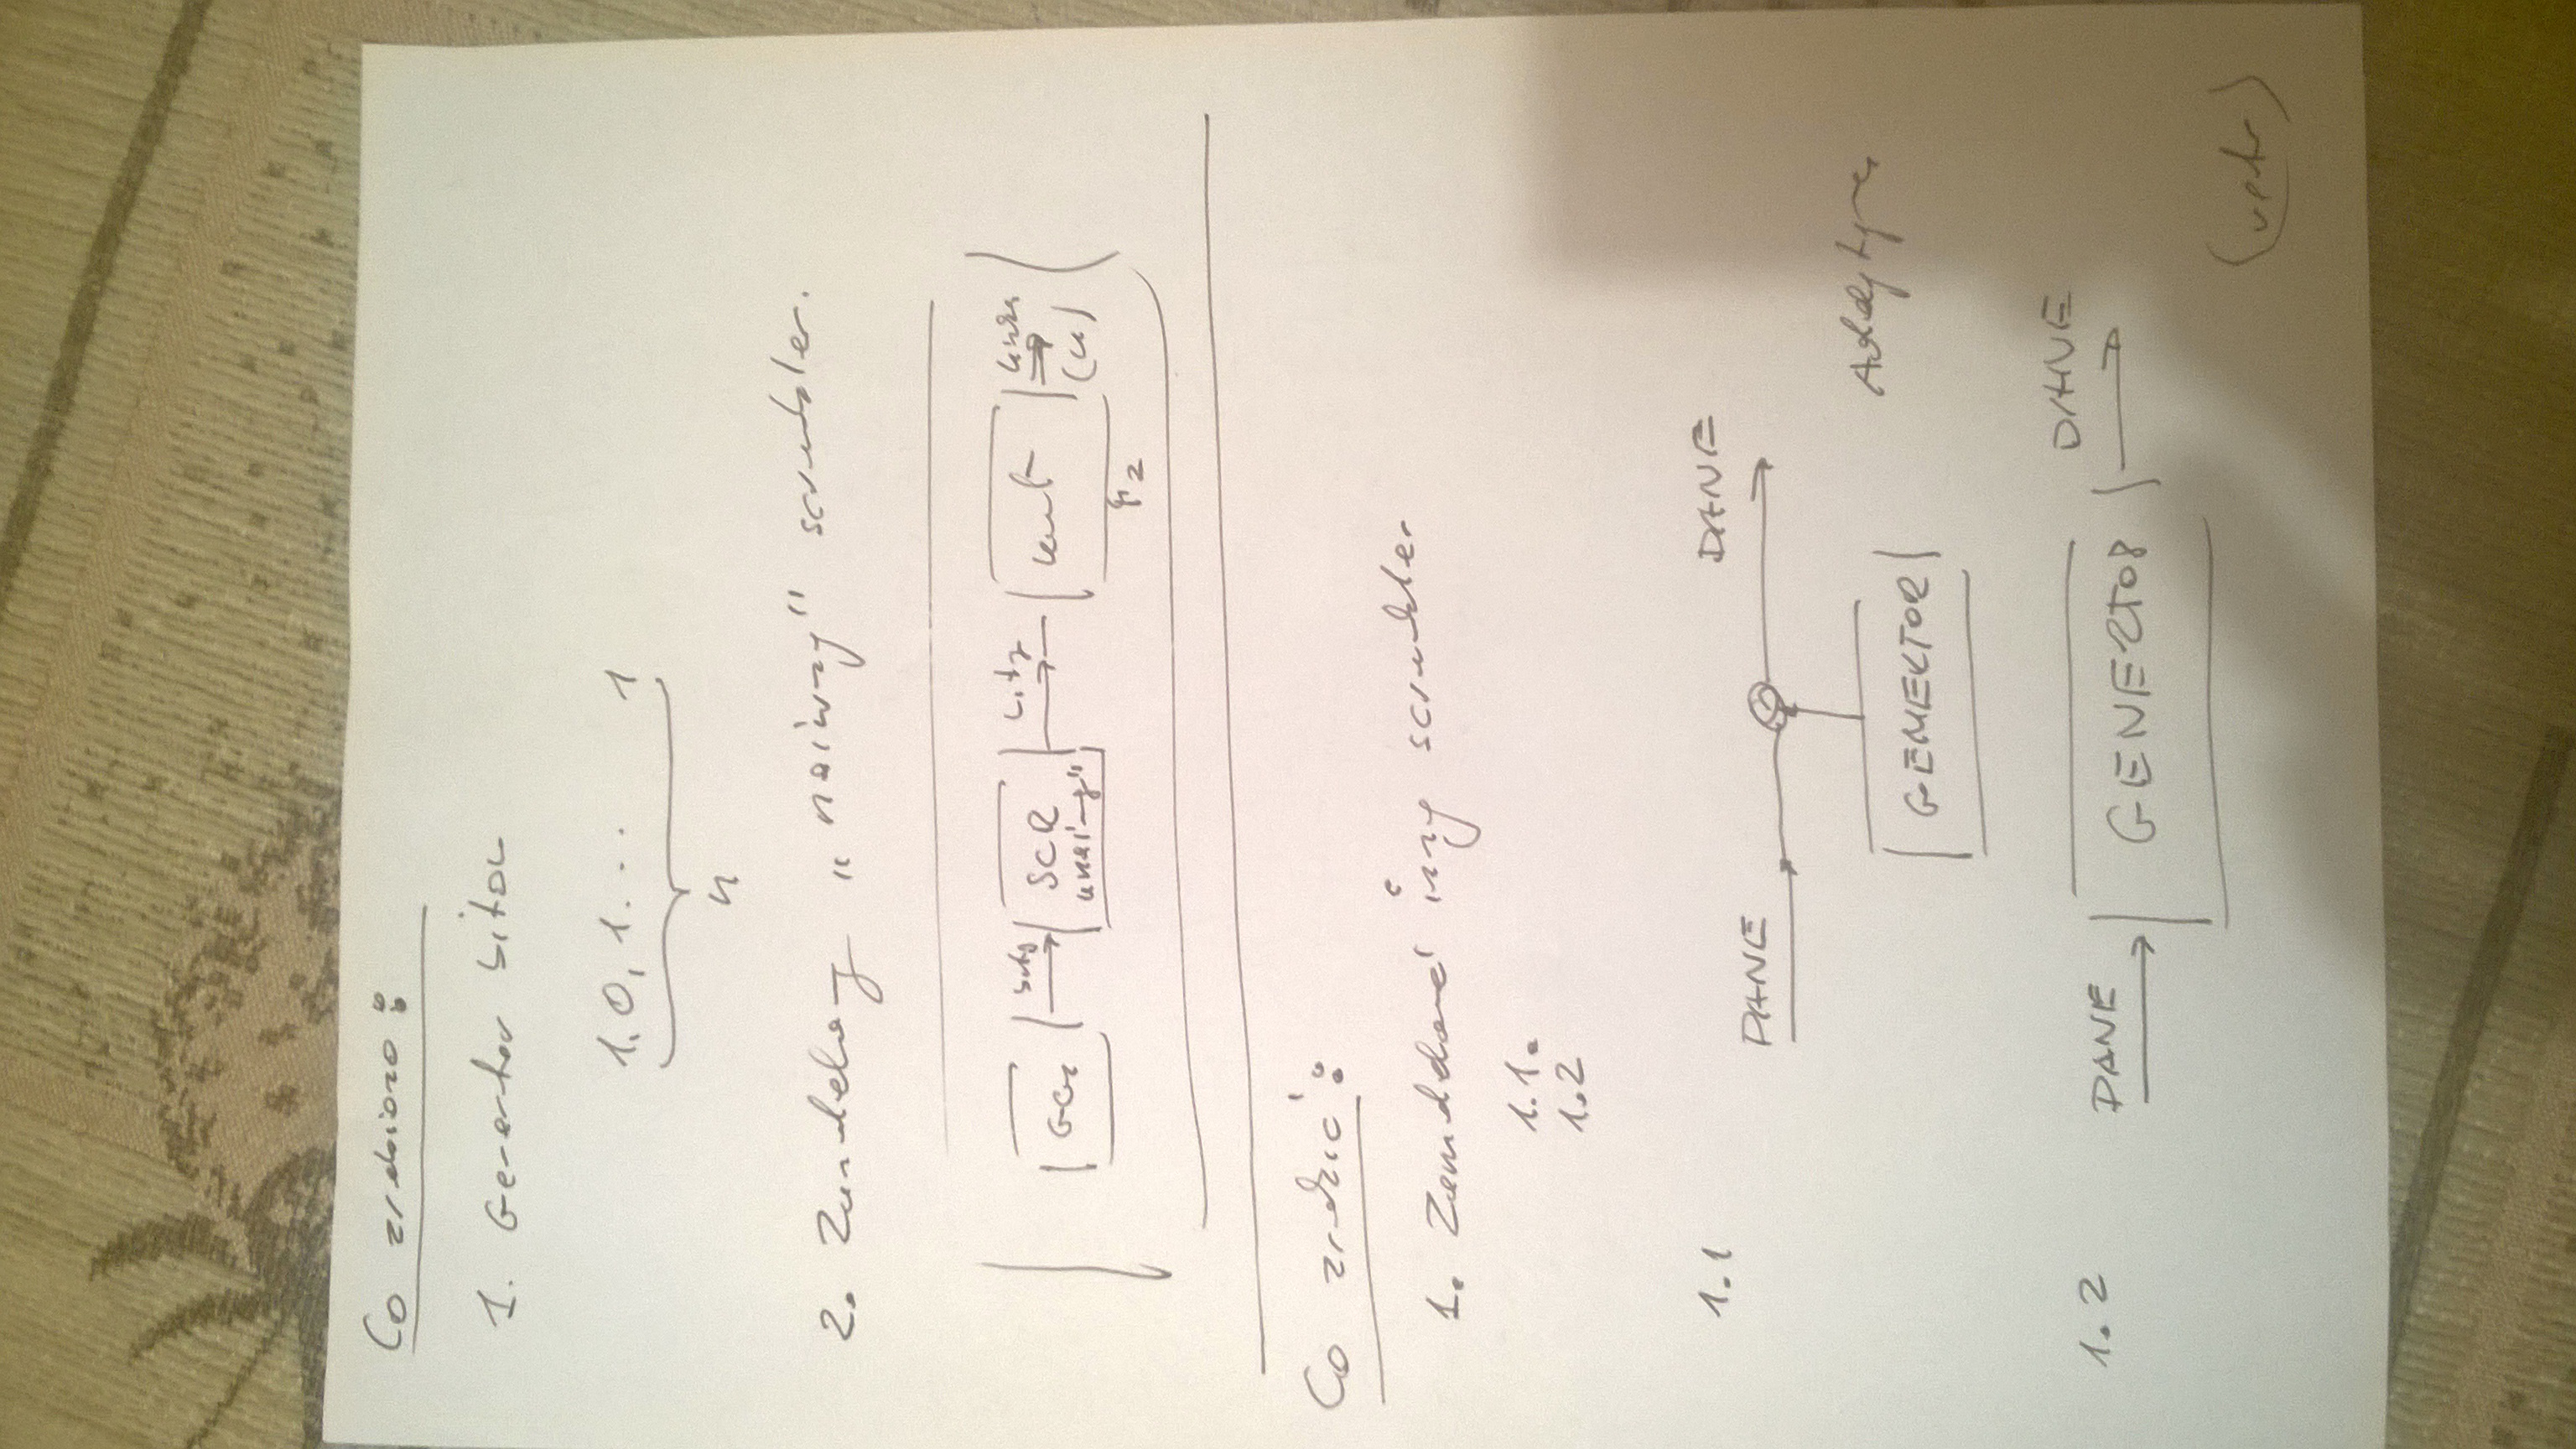 Co zrobiono:
1. Generator bitów
1.0,1... 1
n
2. Zamodelowany "naiwny" scrambler.
GEN bity SCR "naiwny" bity kwant kwant (u)
Co zrobić:
1. Zamodelować inny scrambler
1.1.
1.2
1.1
DANE DANE
GENERATOR
Addytywny
1.2
DANE GENERATOR DANE
(verte)